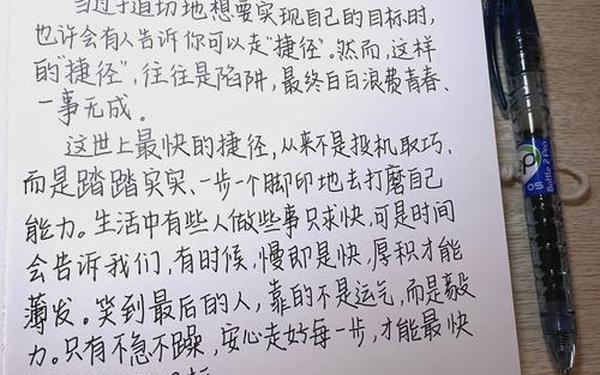 当过于迫切地想要实现自己的目标时,
也许会有人告诉你可以走"捷径"。然而,这样
的"捷径",往往是陷阱,最终白白浪费青春、
一事无成。
这世上最快的捷径,从来不是投机取巧,
而是踏踏实实、一步一个脚印地去打磨自己
能力。生活中有些人做些事只求快,可是时间
会告诉我们,有时候,慢即是快,厚积才能
薄发。笑到最后的人,靠的不是运气,而是毅
力。只有不急不躁,安心走好每一步,才能最快
目标
Bottle 2 Pen
05